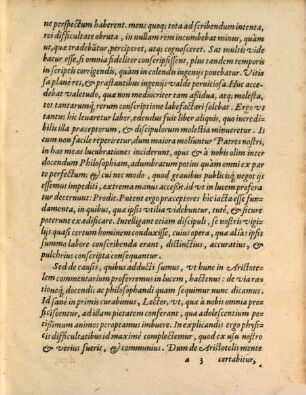 ne perspectum haberent. mens quoq; tota ad scribendum intenta,
rei difficultate obruta, in nullam rem incumbebat minus, quàm
ut, quæ tradebâtur, perciperet, atq; cognosceret. Sat multi vide
batur esse, si omnia fideliter conscripsissent, plus tandem temporis
in scriptis corrigendis, quàm in colendis ingenijs ponebatur. Vitio
sa planè res, & præstantibus ingenijs valde perniciosa. Huc acce-
debat valetudo, quæ non mediocriter tam assidua, atq; molesta,
tot tantarumq; rerum conscriptione labefactari solebat. Ergo vt
tantus hic leuaretur labor, edendus fuit liber aliquis, quo incredi-
bilis illa præceptorum, & discipulorum molestia minueretur. Is
cum non facile reperiretur, dum maiora moliuntur Patres nostri,
in has meas lucubrationes inciderunt, opus & à nobis olim inter
docendum Philosophiam, adumbratum potius quàm omni ex par
te perfectum; & cui nec modo, quod grauibus publicisq; negotijs
essemus impediti, extrema manus accesit. id vt in lucem profera
tur decernunt: Prodit. Putent ergo præceptores hic iacta esse fun-
damenta, in quibus, quæ ipsis vtilia videbuntur, tutè, & si cupo-
poterunt exædificare. Intelligant etiam discipuli, se nostris vigilijs
quasi certum hominem conduxisse, cuius opera, quæ alias ipsis
summo labore conscribenda erant, distinctius, accuratius, &
pulchrius conscripta consequantur.
Sed de causis, quibus adducti sumus, vt hunc in Aristote-
lem commentarium proferremus in lucem, hactenus: de via ra-
tioneq́; docendi, ac philosophandi quam sequimur nunc dicamus.
Id sanè in primis curabimus, Lector, vt, quæ à nobis omnia pro-
ficiscentur, ad illam pietatem conferant, qua adolescentium po-
tissimum animos peroptamus imbuere. In explicandis ergo physi-
cis difficultatibus id maximè complectemur, quod ex usu nostro
& verius fuerit, & communius. Dum de Aristotelis mente
a 3 certabitur,